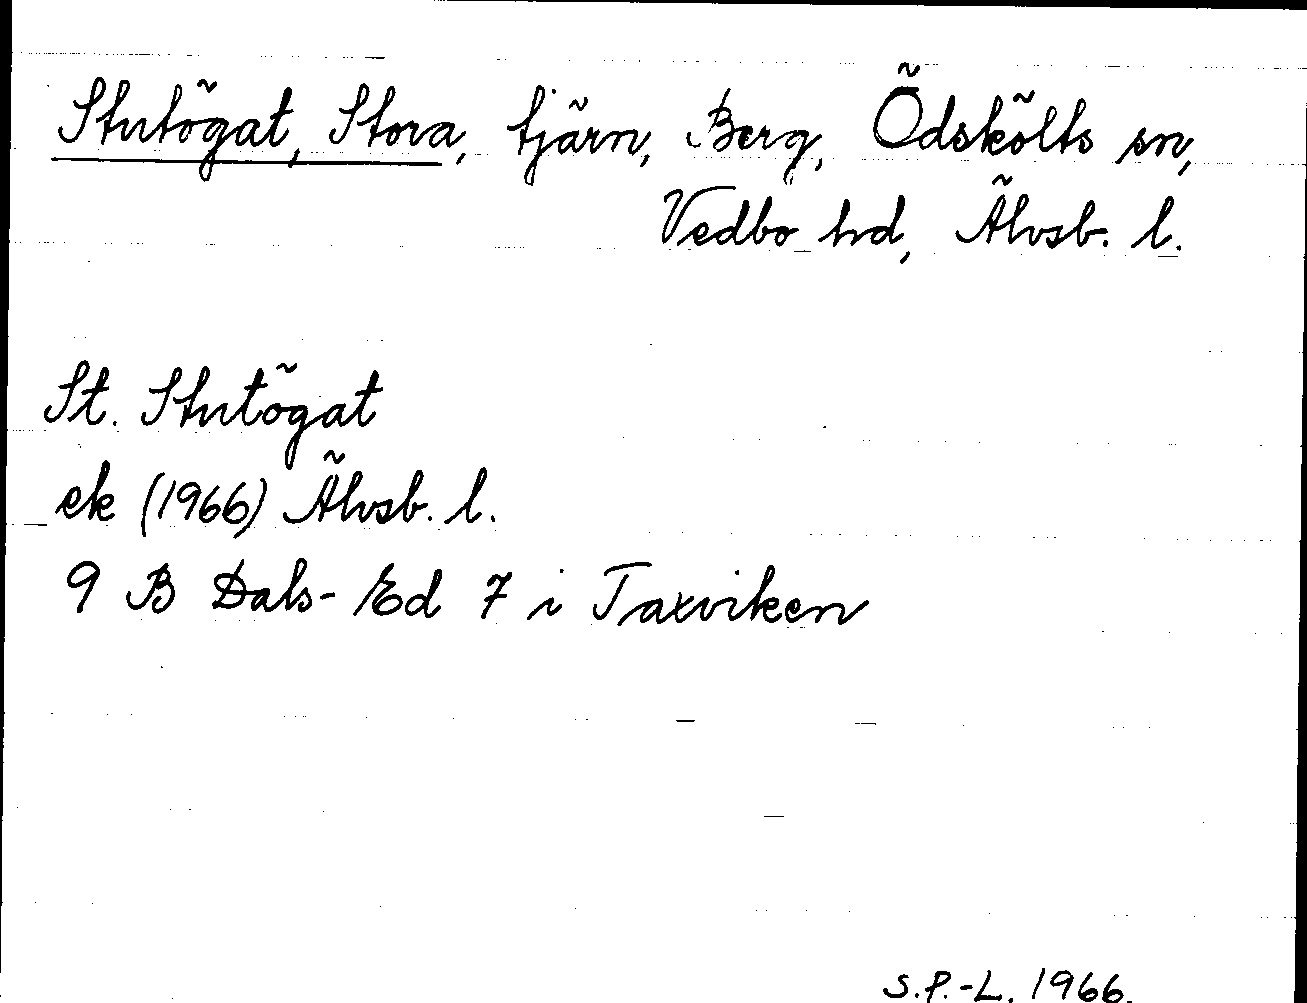 Stutögat, Stora, tjärn, Berg, Ödskölts sn,
Vedbo hd, Älvsb. l.
St. Stutögat
ek (1966) Älvsb. l.
9 B Dals-Ed 7 i Taxviken
S.P.-L. 1966.